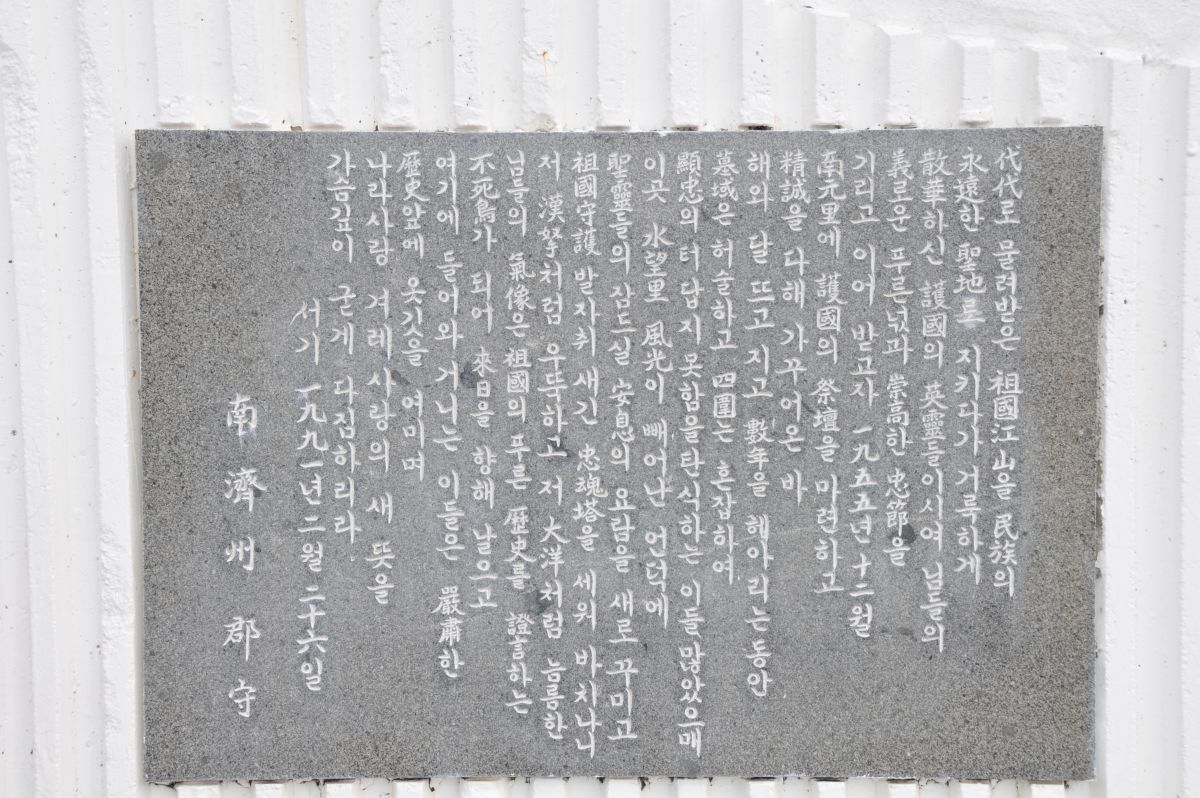 代代로 물려받은 祖國江山을 民族의
永遠한 聖地로 지키다가 거룩하게
散華하신 護國의 英靈들이시여 님들의
義로운 푸른넋과 崇高한 忠節을
기리고 이어 받고자 一九五五년 十二월
南元里에 護國의 祭壇을 마련하고
精誠을 다해 가꾸어온 바
해와 달 뜨고 지고 數年을 헤아리는동안
墓域은 허술하고 四圍는 혼잡하여
顯忠의 터답지 못함을 탄식하는 이들 많았으매
이곳 水望里 風光이 빼어난 언덕에
聖靈들의 잠드실 安息의 요람을 새로 꾸미고
祖國守護 발자취 새긴 忠魂塔을 세워 바치나니
저 漢拏처럼 우뚝하고 저 大洋처럼 늠름한
님들의 氣像은 祖國의 푸른 歷史를 證言하는
不死鳥가 되어 來日을 향해 날으고
여기에 들어와 거니는 이들은 嚴肅한
歷史앞에 옷깃을 여미며
나라사랑 겨레사랑의 새 뜻을
가슴깊이 굳게 다짐하리라
서기 一九九一년 二월 二十六일
南濟州郡守